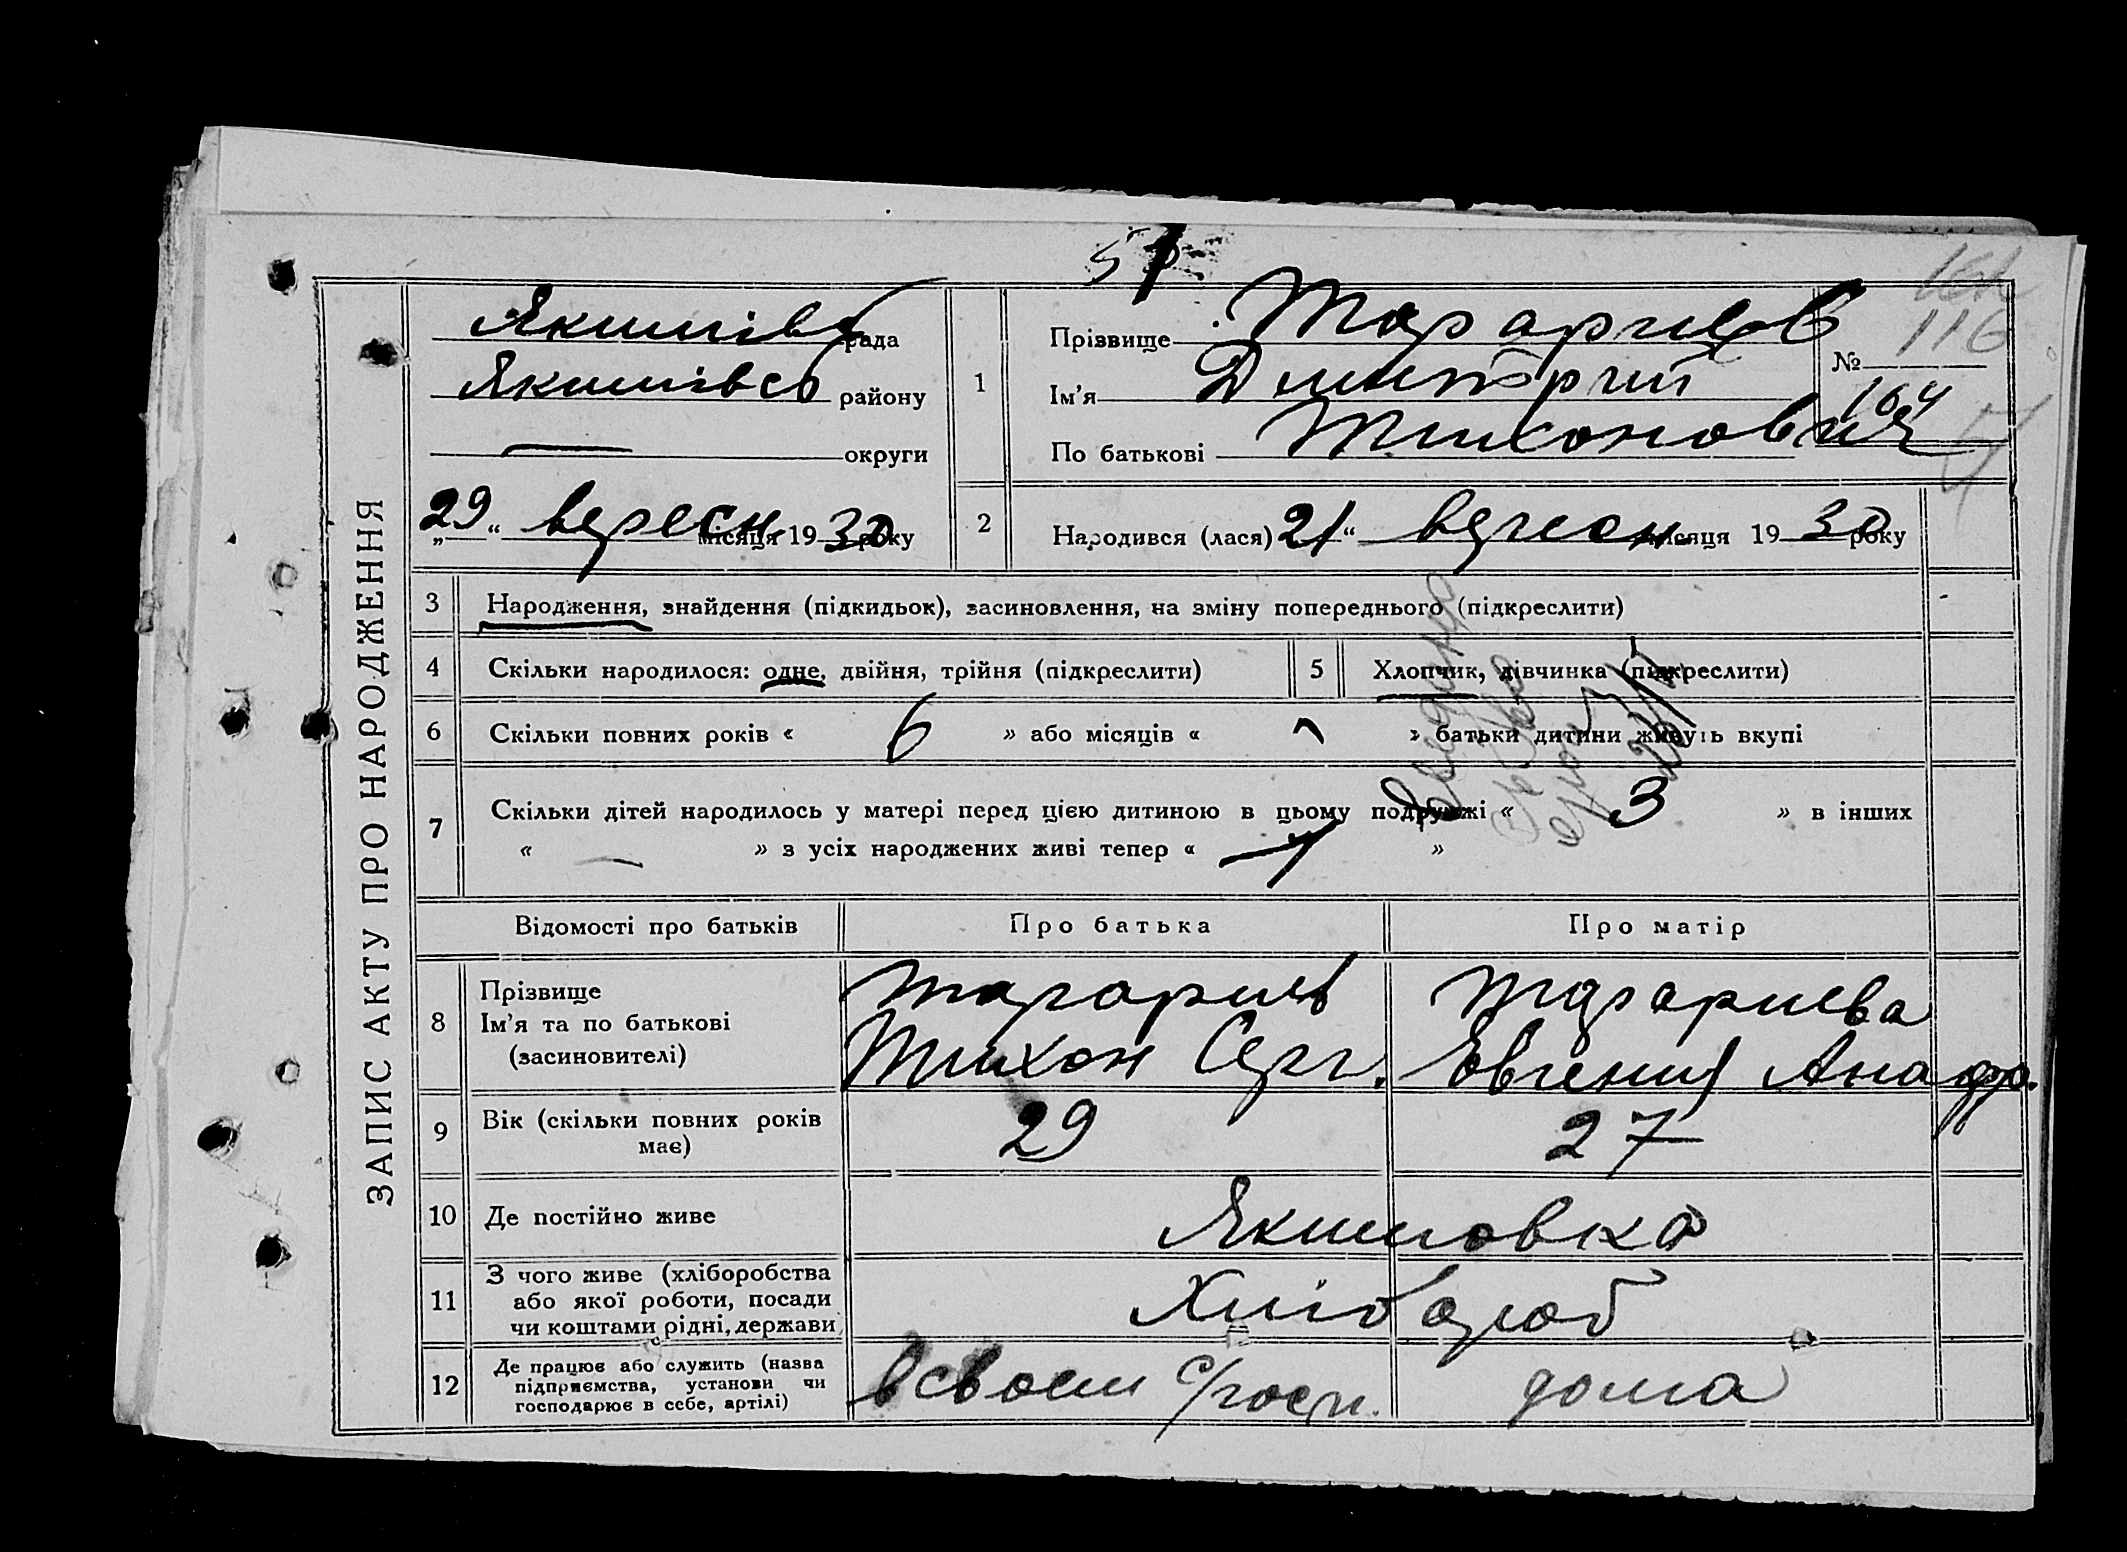 ЗАПИС АКТУ ПРО НАРОДЖЕННЯ
Якимівс рада
Якимівсь району
округи
„29“ вересн місяця 1930 року
1
Прізвище
Ім'я Дмитрий
По батькові Тихонович
№ 116
164
2
Народився (лася) 21“ вересн місяця 1930 року
3 Народження, знайдення (підкидьок), засиновлення, на зміну попереднього (підкреслити)
4 Скільки народилося: одне, двійня, трійня (підкреслити)
5 Хлопчик, дівчинка (підкреслити)
6 Скільки повних років « 6 » або місяців « » батьки дитини живуть вкупі
7 Скільки дітей народилось у матері перед цією дитиною в цьому подружжі « 3 » в інших
« — » з усіх народжених живі тепер « »
Відомості про батьків Про батька Про матір
8 Прізвище
Ім'я та по батькові
(засиновителі)
Тихон Серг.
Евгения
9 Вік (скільки повних років
має)
29 27
10 Де постійно живе Якимовка
11 З чого живе (хліборобства
або якої роботи, посади
чи коштами рідні, держави
Хлібороб
12 Де працює або служить (назва
підприємства, установи чи
господарює в себе, артілі)
в своем с/госп. дома